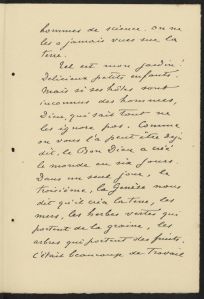 hommes de science. on ne
les a jamais vues sur la
terre.
Tel est mon jardin!
Délicieux petits enfants.
Mais si ses hôtes sont
inconnus des hommes,
Dieu, qui sait tout ne
les ignore pas. Comme
on vous l'a peut être déjà
dit, le Bon Dieu a créé
le monde en six jours.
Dans un seul jour, le
troisième, la Genèse nous
dit qu'il créa la terre, les
mers, les herbes vertes qui
portent de la graine, les
arbres qui portent des fruits.
c'était beaucoup de travail